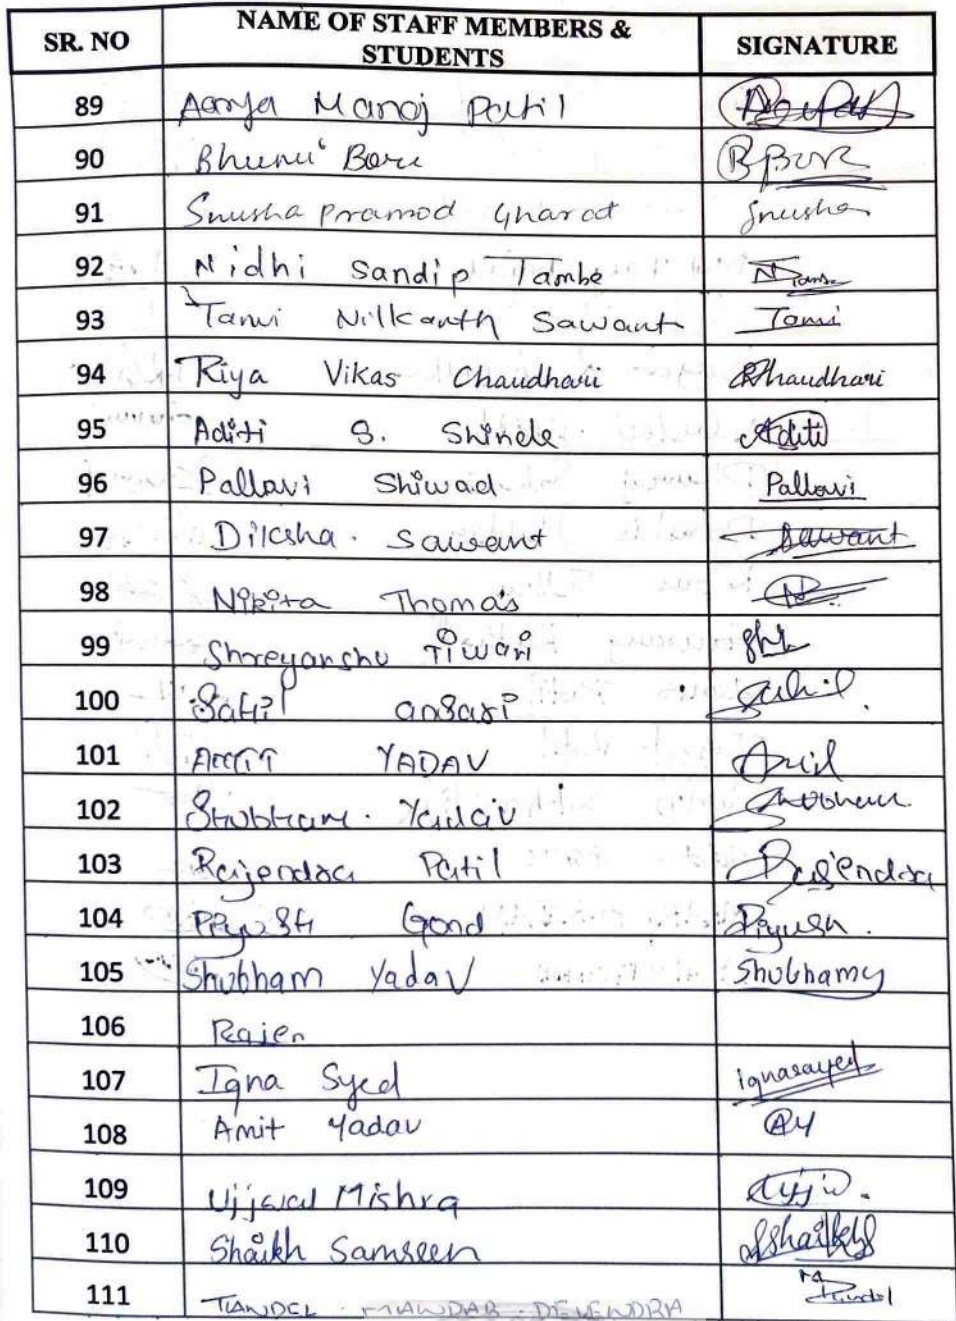 SR. NO NAME OF STAFF MEMBERS & STUDENTS SIGNATURE
89 Aarya Manoj Patil
90 Bhumi Bore BBore
91 Snusha Pramod Gharat Snusha
92 Nidhi Sandip Tambe NTambe
93 Tanvi Nilkanth Sawant Tanvi
94 Riya Vikas Chaudhari RChaudhari
95 Aditi S. Shinde Aditi
96 Pallavi Shiwad Pallavi
97 Diksha. Sawant Sawant
98 Nikita Thomas
99 Shreyanshu Tiwari
100 Sahil ansari Sahil.
101 YADAV
102 Shubham. Yadav Shubham
103 Rajendra Patil Rajendra
104 Piyush Gond Piyush.
105 Shubham Yadav Shubhamy
106 Rajen
107 Iqna Syed Iqnasayed
108 Amit Yadav AY
109 Ujjwal Mishra
110 Shaikh Samseen Sshaikh
111 TANDEL. MANDAR. DEVENDRA Tandel